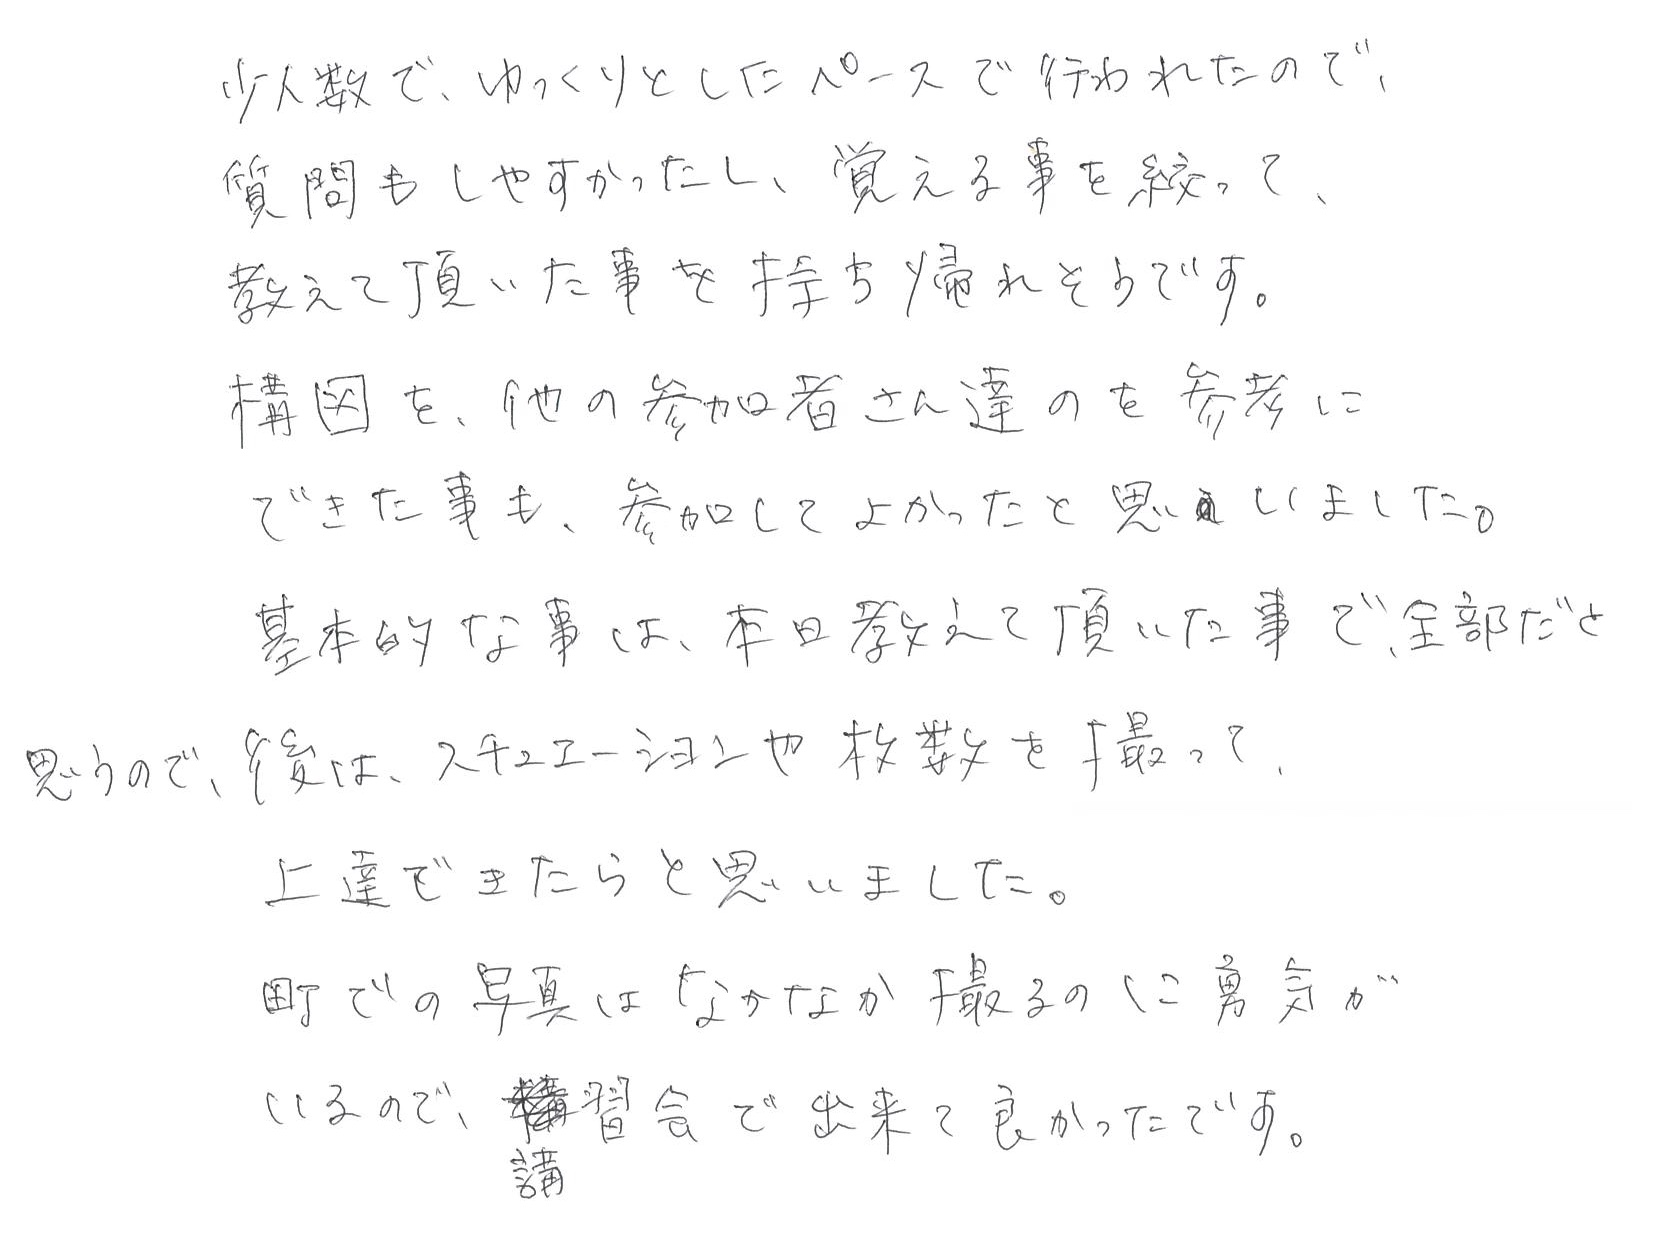 少人数で、ゆっくりとしたペースで行われたので、
質問もしやすかったし、覚える事を絞って、
教えて頂いた事を持ち帰れそうです。
構図を、他の参加者さん達のを参考に
できた事も、参加してよかったと思いました。
基本的な事は、本日教えて頂いた事で、全部だと
思うので、後は、スチュエーションや枚数を撮って、
上達できたらと思いました。
町での写真はなかなか撮るのに勇気が
いるので、講習会で出来て良かったです。